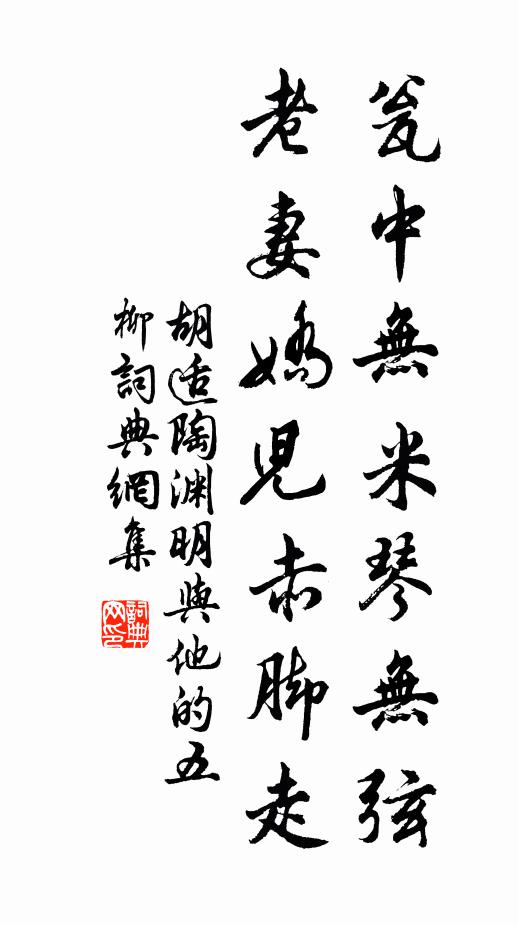 瓮中無米琴無弦
老妻嬌児赤脚走
胡适陶渊明與他的五
柳詞典網集
詞典网印